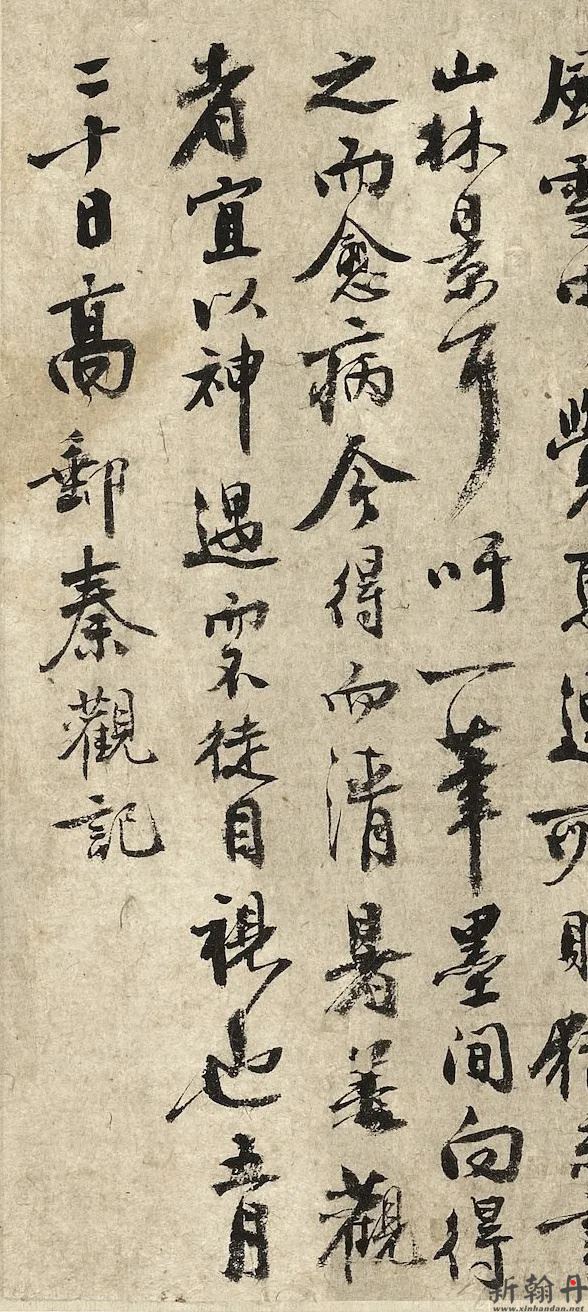 風雪中覺可
山林景耳吁一筆墨間向得
之而愈病今得而清暑善觀
者宜以神遇而不徒目視也五月
二十日高郵秦觀記
新翰丹
www.xinhandan.net